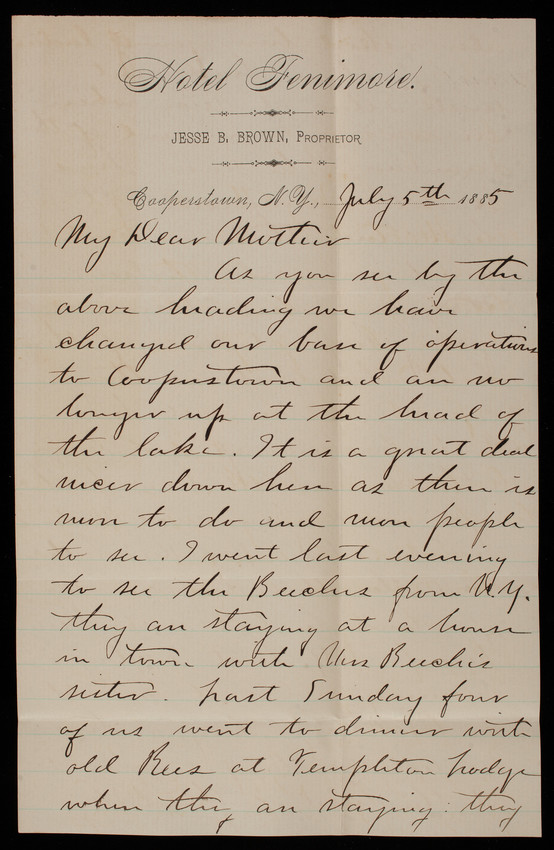 Hotel Fenimore.
JESSE B. BROWN, PROPRIETOR
Cooperstown, N.Y., July 5th 1885
My Dear Mother
As you see by the
above heading we have
changed our base of operations
to Cooperstown and are no
longer up at the head of
the lake. It is a great deal
nicer down here as there is
more to do and more people
to see. I went last evening
to see the Beechers from N.Y.
they are staying at a house
in town with Mrs Beecher's
sister. Last Sunday four
of us went to dinner with
old at Templeton Lodge
where they are staying. they